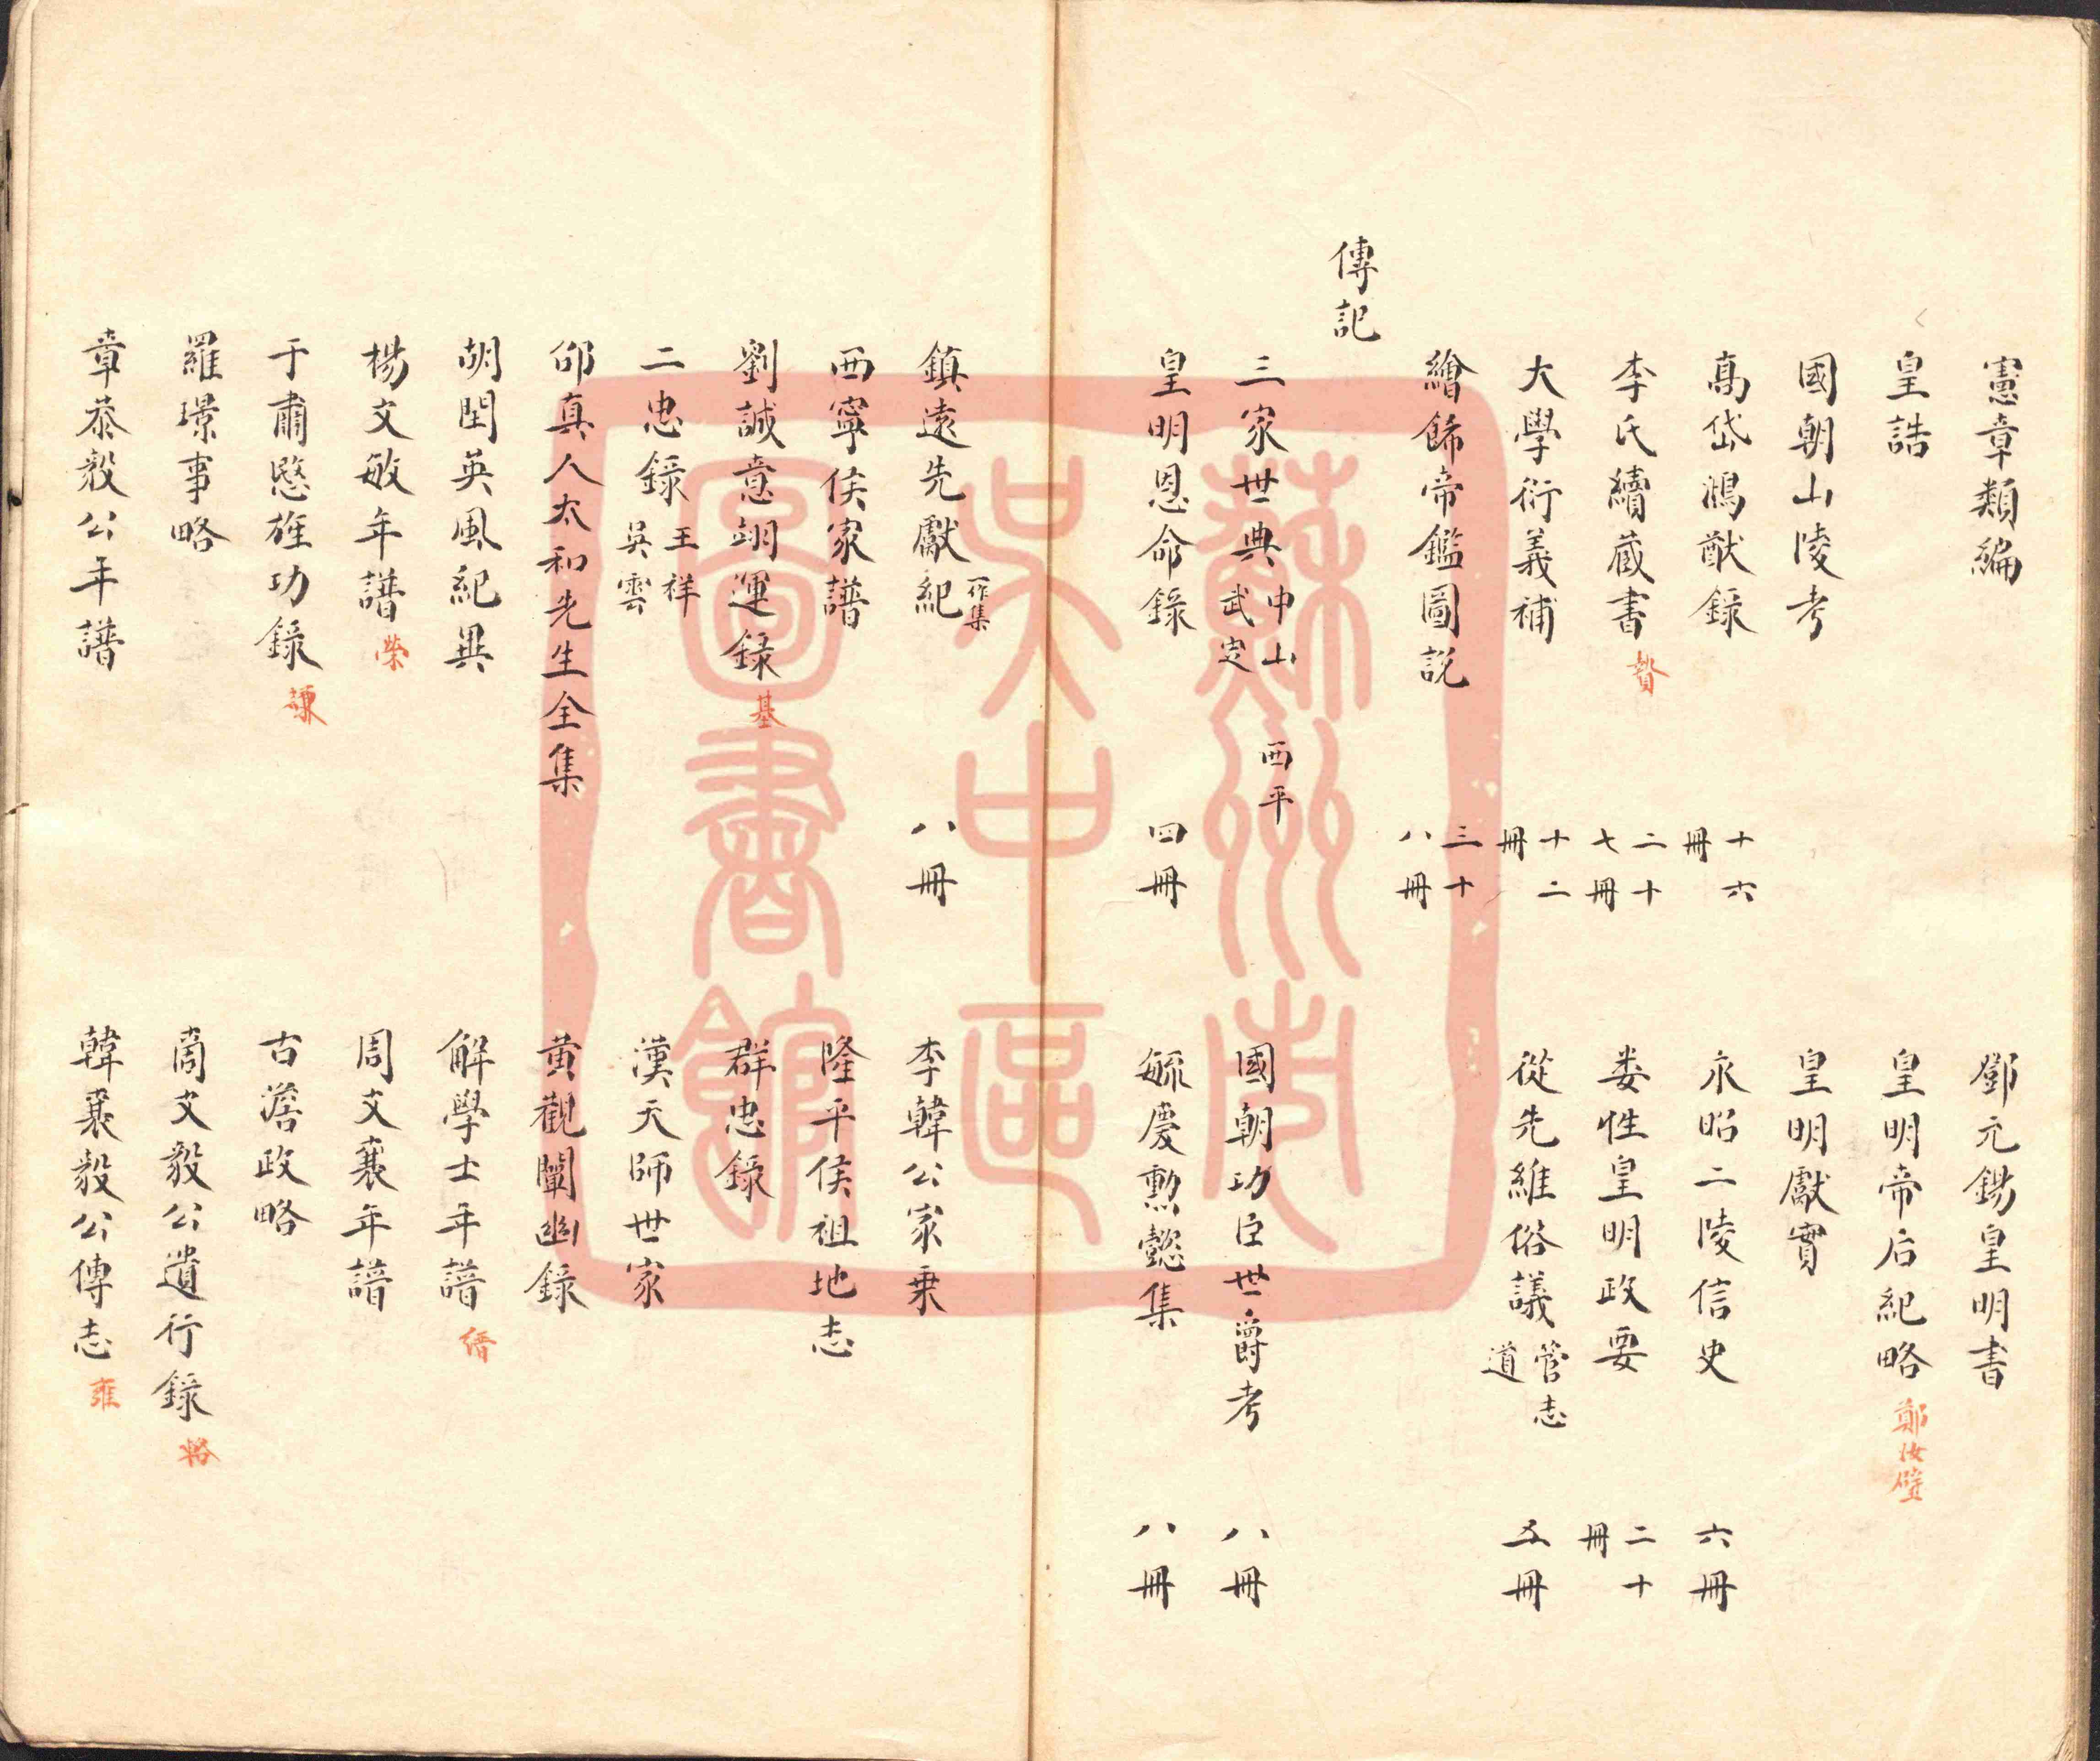 憲章類編　鄧元錫皇明書
皇誥　皇明帝后紀略 鄭汝璧
國朝山陵考　皇明獻實
髙岱鴻猷錄 十六冊　永昭二陵信史 六冊
李氏續藏書 贄 二十七冊　婁性皇明政要 二十冊
大學衍義補 十二冊　從先維俗議 管志道 五冊
繪餙帝鑑圖説 三十八冊
傳記
三家世典 中山 武定 西平　國朝功臣世爵考 八冊
皇明恩命錄 四冊　毓慶勲懿集 八冊
鎮遠先獻紀 一作集 八冊　李韓公家乗
西寧侯家譜　隆平侯祖地志
劉誠意翊運録 基　群忠錄
二忠錄 王祥 吳雲　漢天師世家
邵真人太和先生全集　黃觀闡幽錄
胡閏英風紀異　解學士年譜 縉
楊文敏年譜 榮　周文襄年譜
于肅愍旌功錄 謙　古澹政略
羅璟事略　商文毅公遺行錄 輅
章恭毅公年譜　韓襄毅公傳志 雍
蘇州市
吳中區
圖書館